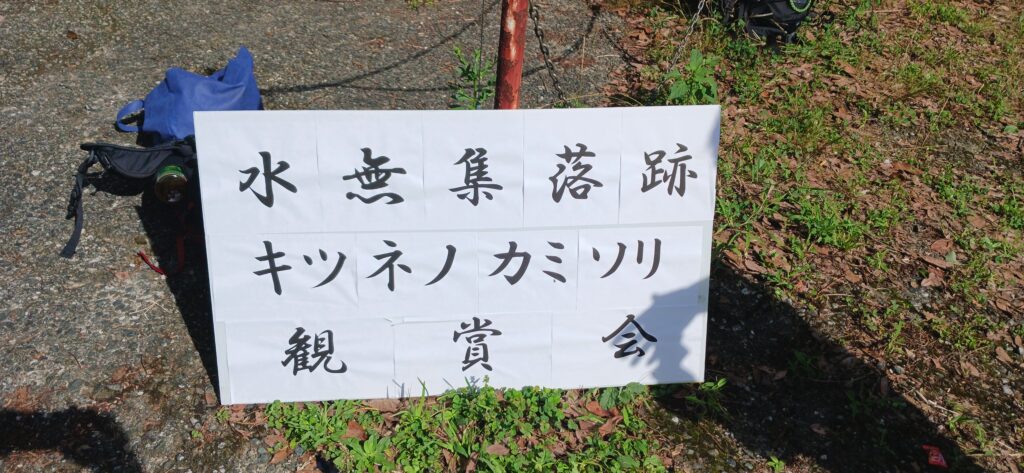 水無集落跡
キツネノカミソリ
観賞会